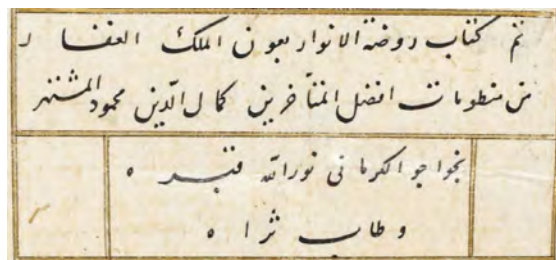 تم کتاب روضة الانوار بعون الملک الغفار
من منظومات افضل المتأخرین کمال الدّین محمود المشتهر
بخواجو الکرمانی نورالله قبره
و طاب ثراه